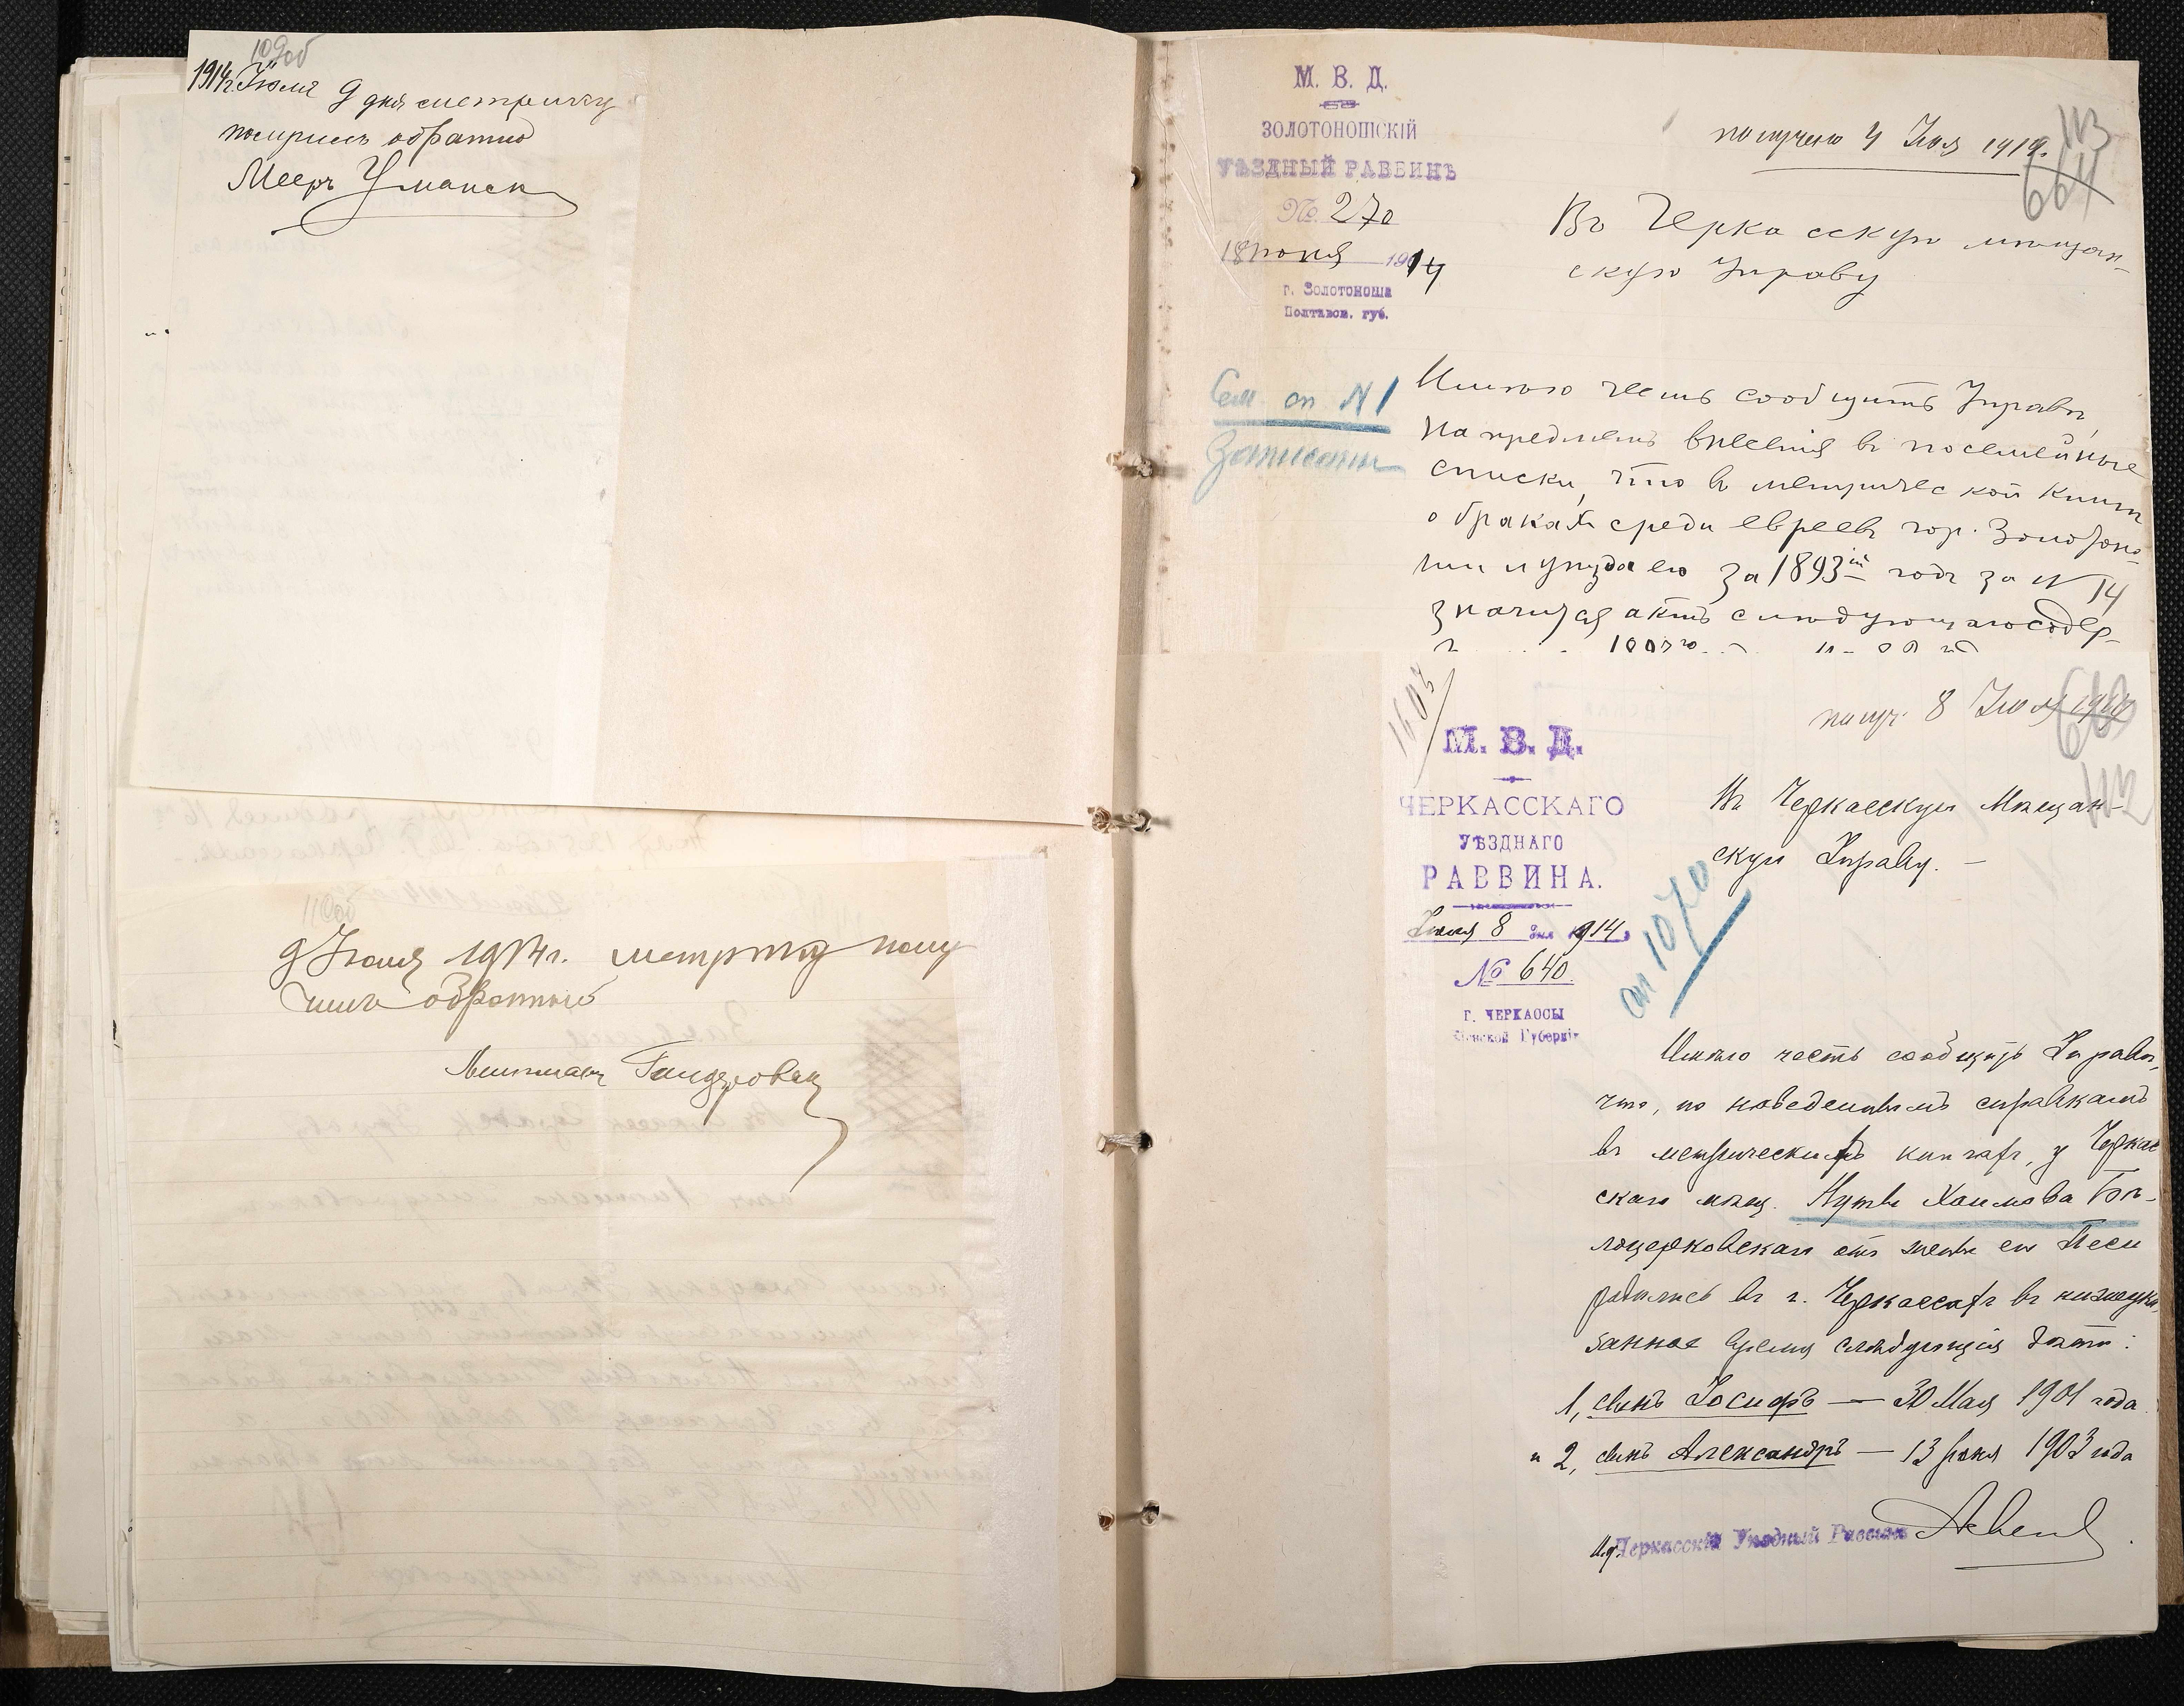 109об
1914 г Июля 9 дня метрику
получилъ обратно
Мееръ Уманск
110об
9 Июля 1914 г. метрику полу
чилъ обратно
Липман
М. В. Д.
ЗОЛОТОНОШСКІЙ
УѢЗДНЫЙ РАВВИНЪ
№ 270
18 июня 1914
г. Золотоноша
Полтавск. губ.
получено 4 Июля 1914.
113
664
Въ Черкасскую мѣщан-
скую Управу
Сем. сп № 1
Записать
Имѣю честь сообщить Управѣ,
на предметъ внесенія въ посемейные
списки, что въ метрической книгѣ
о бракахъ среди евреевъ гор. Золотоно-
ши и уѣзда его за 1893й годъ за № 14
значится актъ слѣдующаго содер-
1603
получ. 8 Июля 1914
663
112
М. В. Д.
ЧЕРКАССКАГО
УѢЗДНАГО
РАВВИНА.
Июля 8 дня 1914 г.
№ 640.
Г. ЧЕРКАССЫ
Кіевской Губерніи
Въ Черкасскую Мѣщан-
скую Управу. —
сп 1070
Имѣю честь сообщить Управѣ,
что, по наведеннымъ справкамъ
въ метрическихъ книгахъ, у Черкас
скаго мѣщ. Нуты Хаимова Бѣ-
лоцерковскаго отъ жены его Песи
родились въ г. Черкассахъ въ нижеука-
занное время слѣдующія дѣти:
1, сынъ Іосифъ — 30 Мая 1901 года
и 2, сынъ Александръ — 13 Іюня 1903 года
И.д. Черкасскій Уѣздный Раввинъ